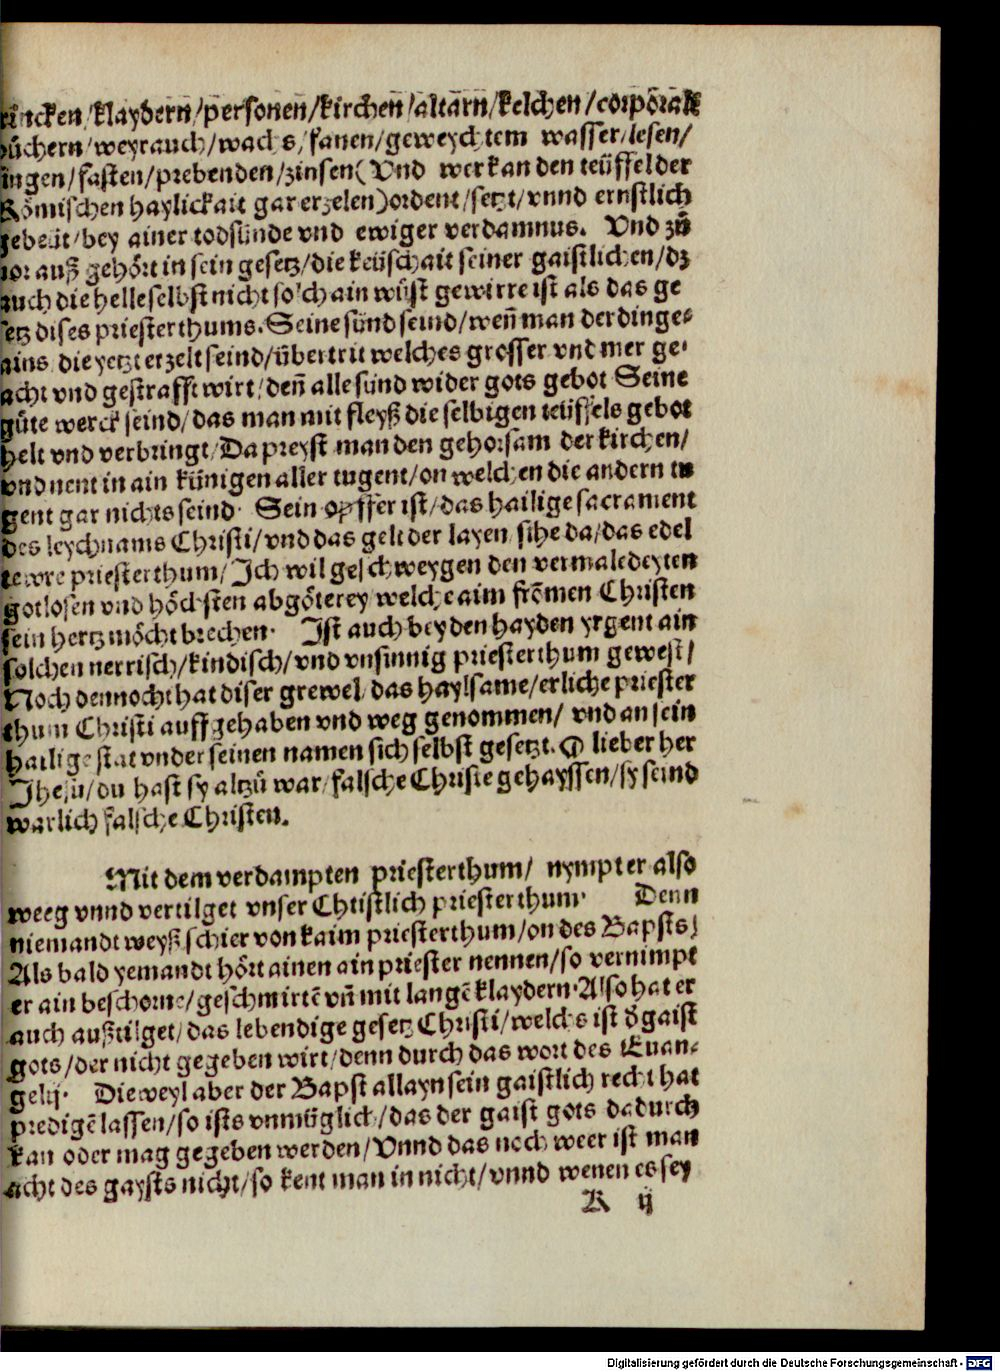 trincken/klaydern/personen/kirchen/altarn/kelchen/corporall
bůchern/weyrauch/wachs/fanen/geweychtem wasser/lesen/
singen/fasten/prebenden/zinsen(Vnd wer kan den teüffel der
Römischen haylickait gar erzelen)ordent/setzt/vnnd ernstlich
gebeüt/bey ainer todsünde vnd ewiger verdamnus. Vnd zů
vor auß gehört in sein gesetz/die keüschait seiner gaistlichen/dz
auch die helle selbst nicht solch ain wüst gewirre ist als das ge
setz dises priesterthums. Seine sünd seind/weñ man der dinge⸗
ains die yetzt erzelt seind/übertrit welches grosser vnd mer ge⸗
acht vnd gestrafft wirt/deñ alle sünd wider gots gebot Seine
gůte werck seind/das man mit fleyß die selbigen teüffels gebot
helt vnd verbringt/Da preyst man den gehorsam der kirchen/
vnd nent in ain künigen aller tugent/on welchen die andern tu
gent gar nichts seind. Sein opffer ist/das hailige sacrament
des leychnams Christi/vnd das gelt der layen sihe da/das edel
tewre priesterthum/Ich wil geschweygen den vermaledeyten
gotlosen vnd höchsten abgöterey welche aim frōmen Christen
sein hertz möcht brechen. Ist auch bey den hayden yrgent ain
solchen nerrisch/kindisch/vnd vnsinnig priesterthum gewest/
Noch dennocht hat diser grewel das haylsame/erliche priester
thum Christi auffgehaben vnd weg genommen/ vnd an sein
hailige stat vnder seinen namen sich selbst gesetzt. O lieber her
Ihesu/du hast sy altzů war/falsche Christe gehayssen/sy seind
warlich falsche Christen.
Mit dem verdampten priesterthum/ nympt er also
weeg vnnd vertilget vnser Chtistlich priesterthum. Denn
niemandt weyß schier von kaim priesterthum/on des Bapsts/
Als bald yemandt hört ainen ain priester nennen/so vernimpt
er ain beschorne/geschmirtē vñ mit langē klaydern. Also hat er
auch außtilget/das lebendige gesetz Christi/welchs ist d̕ gaist
gots/der nicht gegeben wirt/denn durch das wort des Euan⸗
gelij. Die weyl aber der Bapst allayn sein gaistlich recht hat
predigē lassen/so ists vnmüglich/das der gaist gots dadurch
kan oder mag gegeben werden/Vnnd das noch weer ist man
acht des gaysts nicht/so kent man in nicht/vnnd wenen es sey
K ij
Digitalisierung gefördert durch die Deutsche Forschungsgemeinschaft - DFG